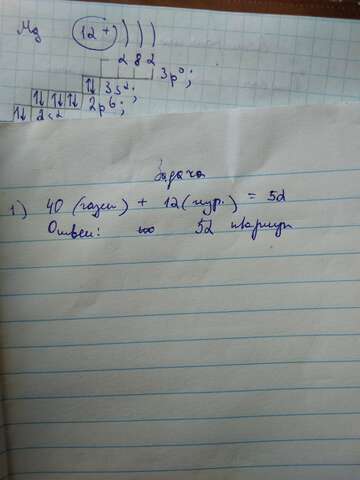 Mg 12+ ) ) )
2 8 2
3p⁰;
↑↓ 3s²;
↑↓ ↑↓ ↑↓ 2p6;
↑↓ 2s²
Задача
1) 40 (газет) + 12 (жур.) = 52
Ответ: 52 квартир